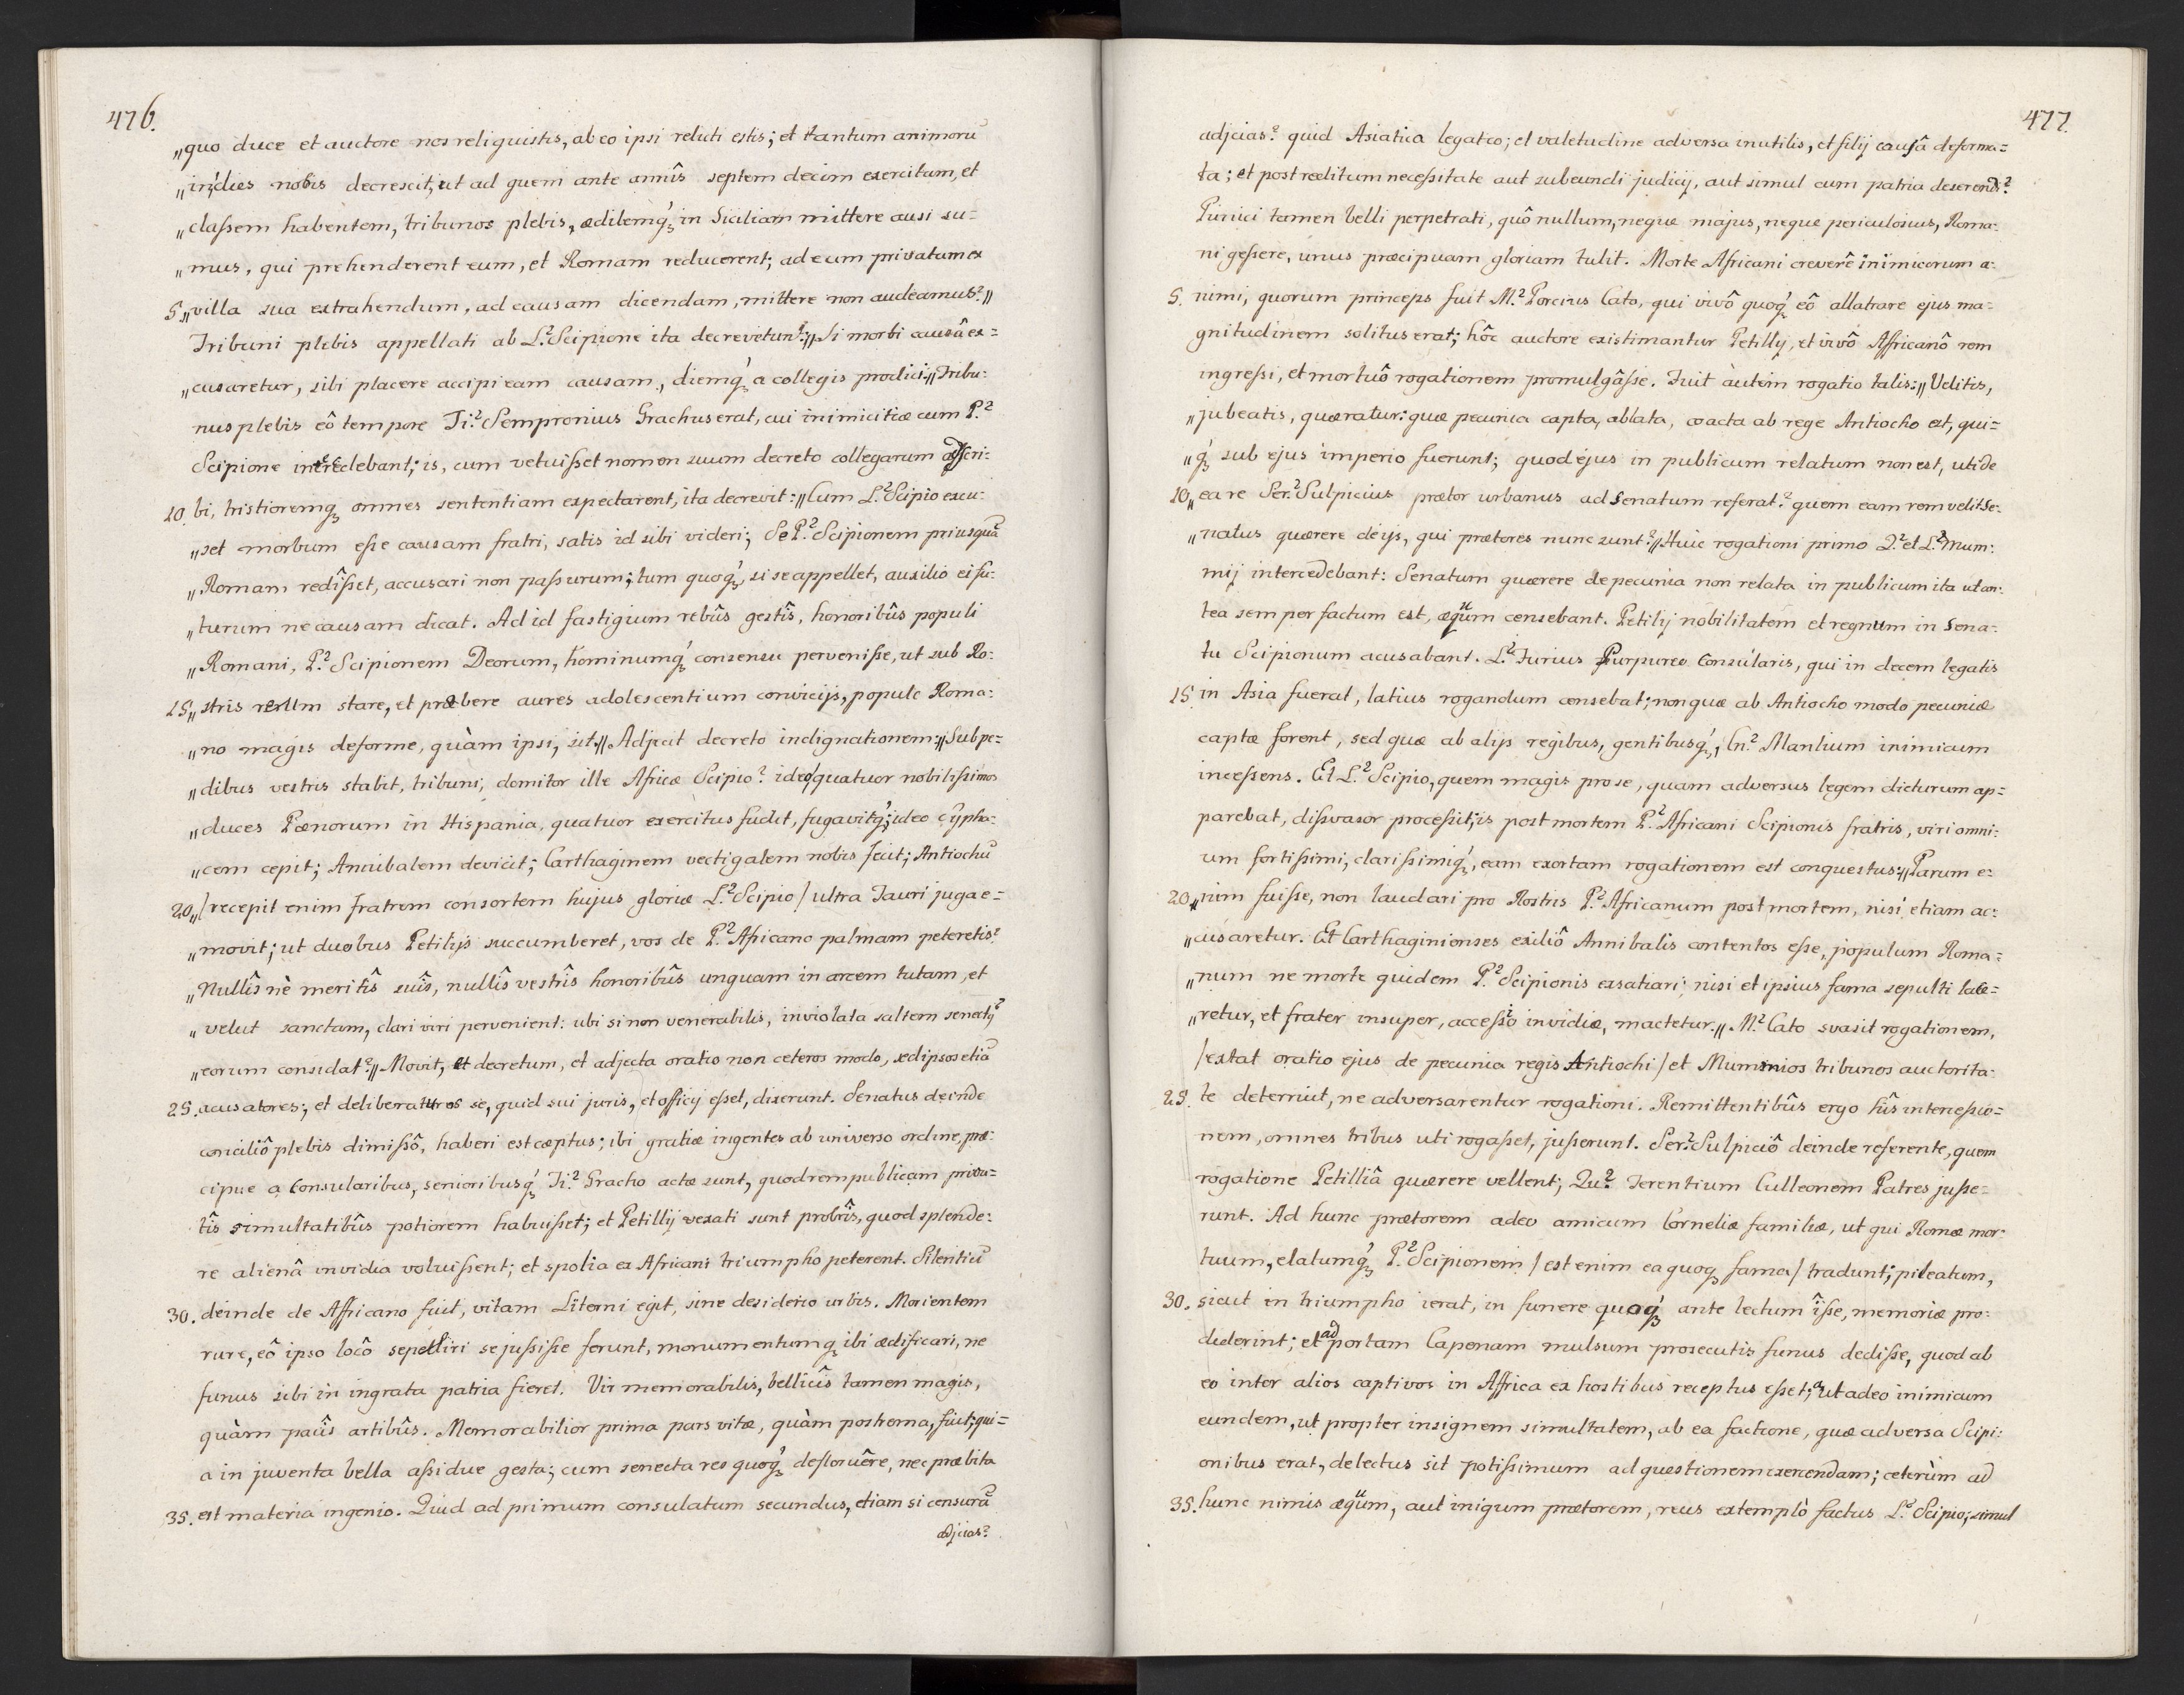 476.
„quo duce et auctore nos reliquistis, ab eo ipsi reluti estis; et tantum animorū
„in dies nobis decrescit, ut ad quem ante annîs septem decim exercitum, et
„classem habentem, tribunos plebis, ædilemq́ꝫ in Siciliam mittere ausi su=
„mus, qui prehenderent eum, et Romam reducerent; ad eum privatum ex
5„villa sua extrahendum, ad causam dicendam, mittere non audeamus?„
Tribuni plebis appellati ab L.² Scipione ita decreverunt:„Si morbi causâ ex=
„cusaretur, sibi placere accipi eam causam, diemq́ꝫ a collegis prodici:„Tribu:
nus plebis eô tempore Ti.² Sempronius Grachus erat, cui inimicitiæ cum P.²
Scipione intercedebant; is, cum vetuisset nomen suum decreto collegarum adscri:
10. bi, tristioremqꝫ omnes sententiam expectarent, ita decrevit:„Cum L.² Scipio excu:
„set morbum esse causam fratri, satis id sibi videri; Se P.² Scipionem priusquā
„Romam redîsset, accusari non passurum; tum quoq́ꝫ, si se appellet, auxilio ei fu:
„turum ne causam dicat. Ad id fastigium rebûs gestîs, honoribûs populi
„Romani, P.² Scipionem Deorum, hominumq́ꝫ consensu pervenisse, ut sub Ro:
15„stris reum stare, et præbere aures adolescentium convicijs, populo Roma:
„no magis deforme, quàm ipsi, sit„ Adjecit decreto indignationem:„Sub pe=
„dibus vestris stabit, tribuni, domitor ille Africæ Scipio? ideo quatuor nobilissimos
„duces Pœnorum in Hispania, quatuor exercitus fudit, fugavitq́ꝫ; ideo Sypha=
„cem cepit; Annibalem devicit; Carthaginem vectigalem nobis fecit; Antiochū
20„/recepit enim fratrem consortem hujus gloriæ L.² Scipio/ ultra Tauri juga e=
„movit; ut duobus Petilijs succumberet, vos de P.² Africano palmam peteretis?
„Nullîs nè meritîs suîs, nullîs vestrîs honoribûs unquam in arcem tutam, et
„velut sanctam, clari viri pervenient: ubi si non venerabilis, inviolata saltem senectꝯ
„eorum considat?„ Movit, et decretum, et adjecta oratio non ceteros modo, sed ipsos etiā
25. acusatores; et deliberaturos se, quid sui juris, et officij esset, dixerunt. Senatus deinde
conciliô plebis dimissô, haberi est cæptus; ibi gratiæ ingentes ab universo ordine, præ:
cipue a consularibus, senioribusq́ꝫ Ti.² Gracho actæ sunt, quod rempublicam priva=
tîs simultatibûs potiorem habuisset; et Petillij vexati sunt probrîs, quod splende:
re alienâ invidia voluissent; et spolia ex Africani triumpho peterent. Silentiū
30. deinde de Affricano fuit, vitam Literni egit, sine desiderio urbis. Morientem
rure, eô ipso locô sepelliri se jussisse ferunt, monumentumqꝫ ibi ædificari, ne
funus sibi in ingrata patria fieret. Vir memorabilis, bellicîs tamen magis,
quàm pacîs artibûs. Memorabilior prima pars vitæ, quàm postrema, fuit; qui=
a in juventa bella assidue gesta; cum senecta res quoq́ꝫ defloruêre, nec præbita
35. est materia ingenio. Quid ad primum consulatum secundus, etiam si censurā
adjcias?
477.
adjcias? quid Asiatica legatio; et valetudine adversa inutilis, et filij causâ deforma=
ta; et post reditum necessitate aut subeundi judicij, aut simul cum patria deserendi?
Punici tamen belli perpetrati, quô nullum, neque majus, neque periculosius, Roma:
ni gessere, unus præcipuam gloriam tulit. Morte Africani crevere inimicorum a:
5. nimi, quorum princeps fuit M.² Porcius Cato, qui vivô quoq́ꝫ eô allatrare ejus ma:
gnitudinem solitus erat; hôc auctore existimantur Petillij, et vivô Affricanô rem
ingressi, et mortuô rogationem promulgâsse. Fuit àutem rogatio talis:„Velitis,
„jubeatis, quæratur: quæ pecunia capta, ablata, coacta ab rege Antiocho est, qui=
„q́ꝫ sub ejus imperio fuerunt; quod ejus in publicum relatum non est, uti de
10„ea re Ser.² Sulpicius prætor urbanus ad Senatum referat? quem eam rem velit Se:
„natus quærere de ijs, qui prætores nunc sunt?„ Huic rogationi primo Q.² et L.² Mum:
mij intercedebant: Senatum quærere de pecunia non relata in publicum ita ut an:
tea semper factum est, æquum censebant. Petilij nobilitatem et regnum in Sena:
tu Scipionum acusabant. L.² Furius Purpureo Consularis, qui in decem legatis
15. in Asia fuerat, latius rogandum censebat; non quæ ab Antiocho modo pecuniæ
captæ forent, sed quæ ab alijs regibus, gentibusq́ꝫ, Cn.² Manlium inimicum
incessens. Et L.² Scipio, quem magis pro se, quam adversus legem dicturum ap=
parebat, dissvasor processit; is post mortem P.² Africani Scipionis fratris, viri omni:
um fortissimi, clarissimiq́ꝫ, eam exortam rogationem est conquestus:„Parum e:
20„nim fuisse, non laudari pro Rostris P.² Africanum post mortem, nisi etiam ac:
„cusaretur. Et Carthaginienses exiliô Annibalis contentos esse, populum Roma=
„num ne morte quidem P.² Scipionis exsatiari; nisi et ipsius fama sepulti lace=
„retur, et frater insuper, accessio invidiæ, mactetur.„ M.² Cato svasit rogationem,
/extat oratio ejus de pecunia regis Antiochi/ et Mummios tribunos auctorita:
25. te deterruit, ne adversarentur rogationi. Remittentibûs ergo hîs intercessio=
nem, omnes tribus uti rogasset, jusserunt. Ser.² Sulpiciô deinde referente, quem
rogatione Petilliâ quærere vellent; Qu.² Terentium Culleonem Patres jusse=
runt. Ad hunc prætorem adeo amicum Corneliæ familiæ, ut qui Romæ mor:
tuum, elatumq́ꝫ P.² Scipionem /est enim ea quoqꝫ fama/ tradunt; pileatum,
30. sicut in triumpho ierat, in funere quoq́ꝫ ante lectum îsse, memoriæ pro:
diderint; et ad portam Capenam mulsum prosecutis funus dedisse, quod ab
eo inter alios captivos in Affrica ex hostibus receptus esset; aut adeo inimicum
eundem, ut propter insignem simultatem, ab ea factione, quæ adversa Scipi:
onibus erat, delectus sit potissimum ad quæstionem exercendam; ceterùm ad
35. hunc nimis æquum, aut iniqum prætorem, reus extemplò factus L.² Scipio; simul